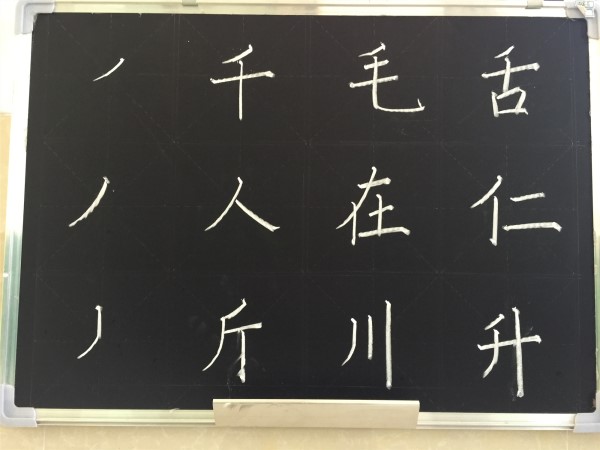 丿 千 毛 舌
丿 人 在 仁
丿 斤 川 升